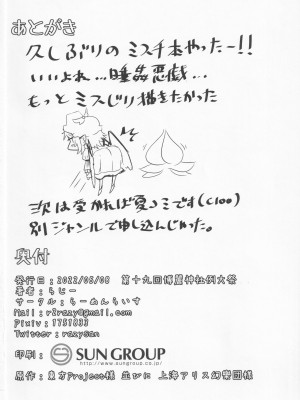 あとがき
久しぶりのミスチ本やったー!!
いいよね…睡姦悪戯…
もっとミスじり描きたかった
次は受かれば夏コミです(C100)
別ジャンルで申し込んじゃった。
奥付
発行日:2022/05/08 第十九回博麗神社例大祭
著者:らじー
サークル:らーめんらいす
Mail:r2razy@gmail.com
Pixiv:1751833
Twitter:razysan
印刷:SUN GROUP
http://www.sungroup.co.jp
原作:東方Project様 並びに 上海アリス幻樂団様